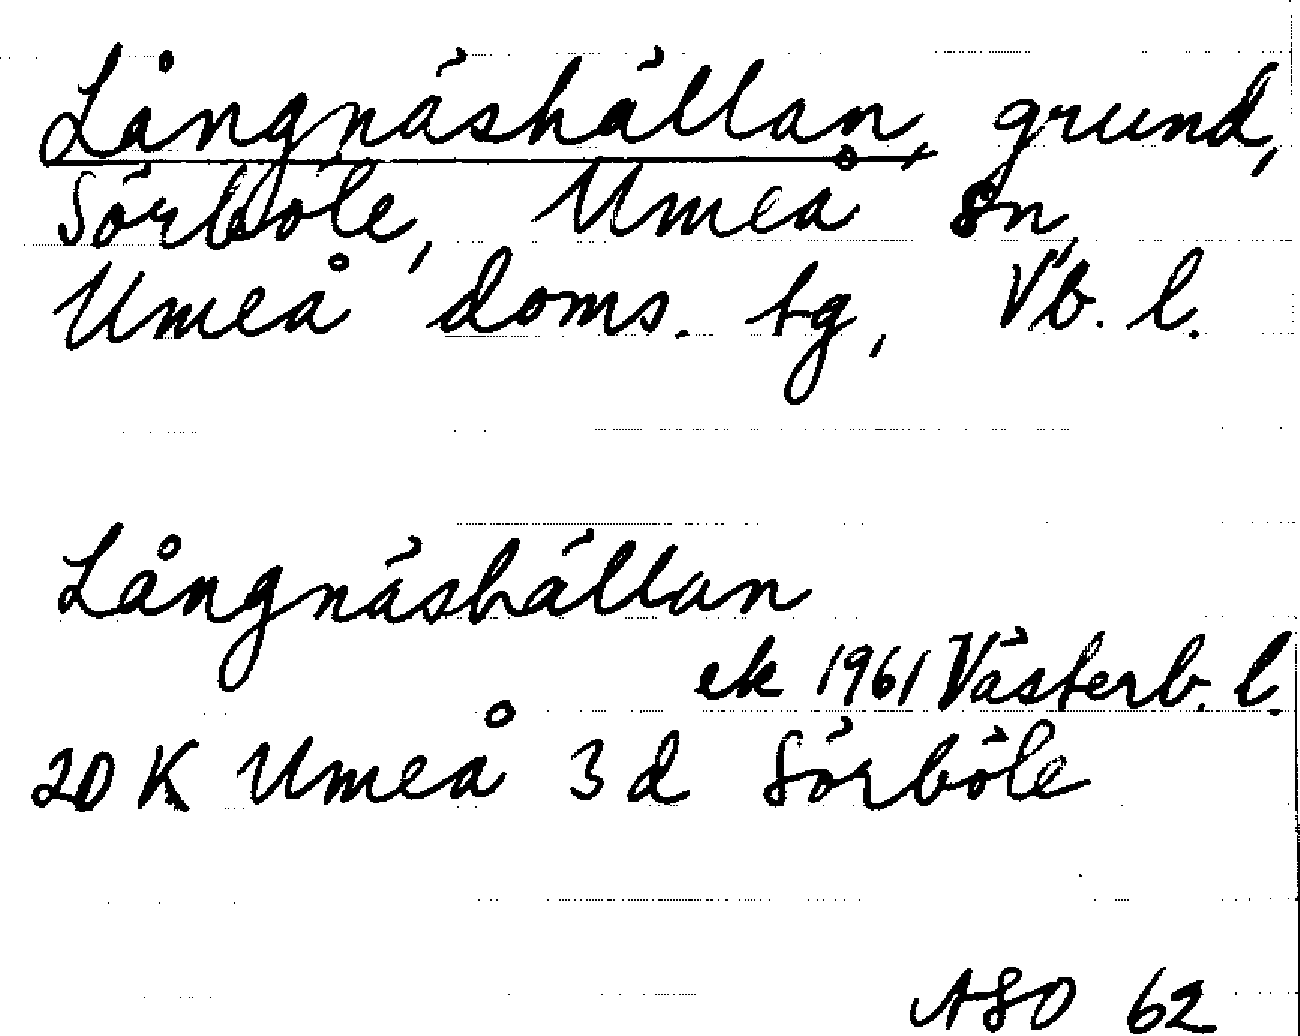 Långnäshällan, grund,
Sörböle, Umeå sn,
Umeå doms. tg, Vb. l.
Långnäshällan
ek 1961 Västerb. l.
20 K Umeå 3 d Sörböle
ASO 62